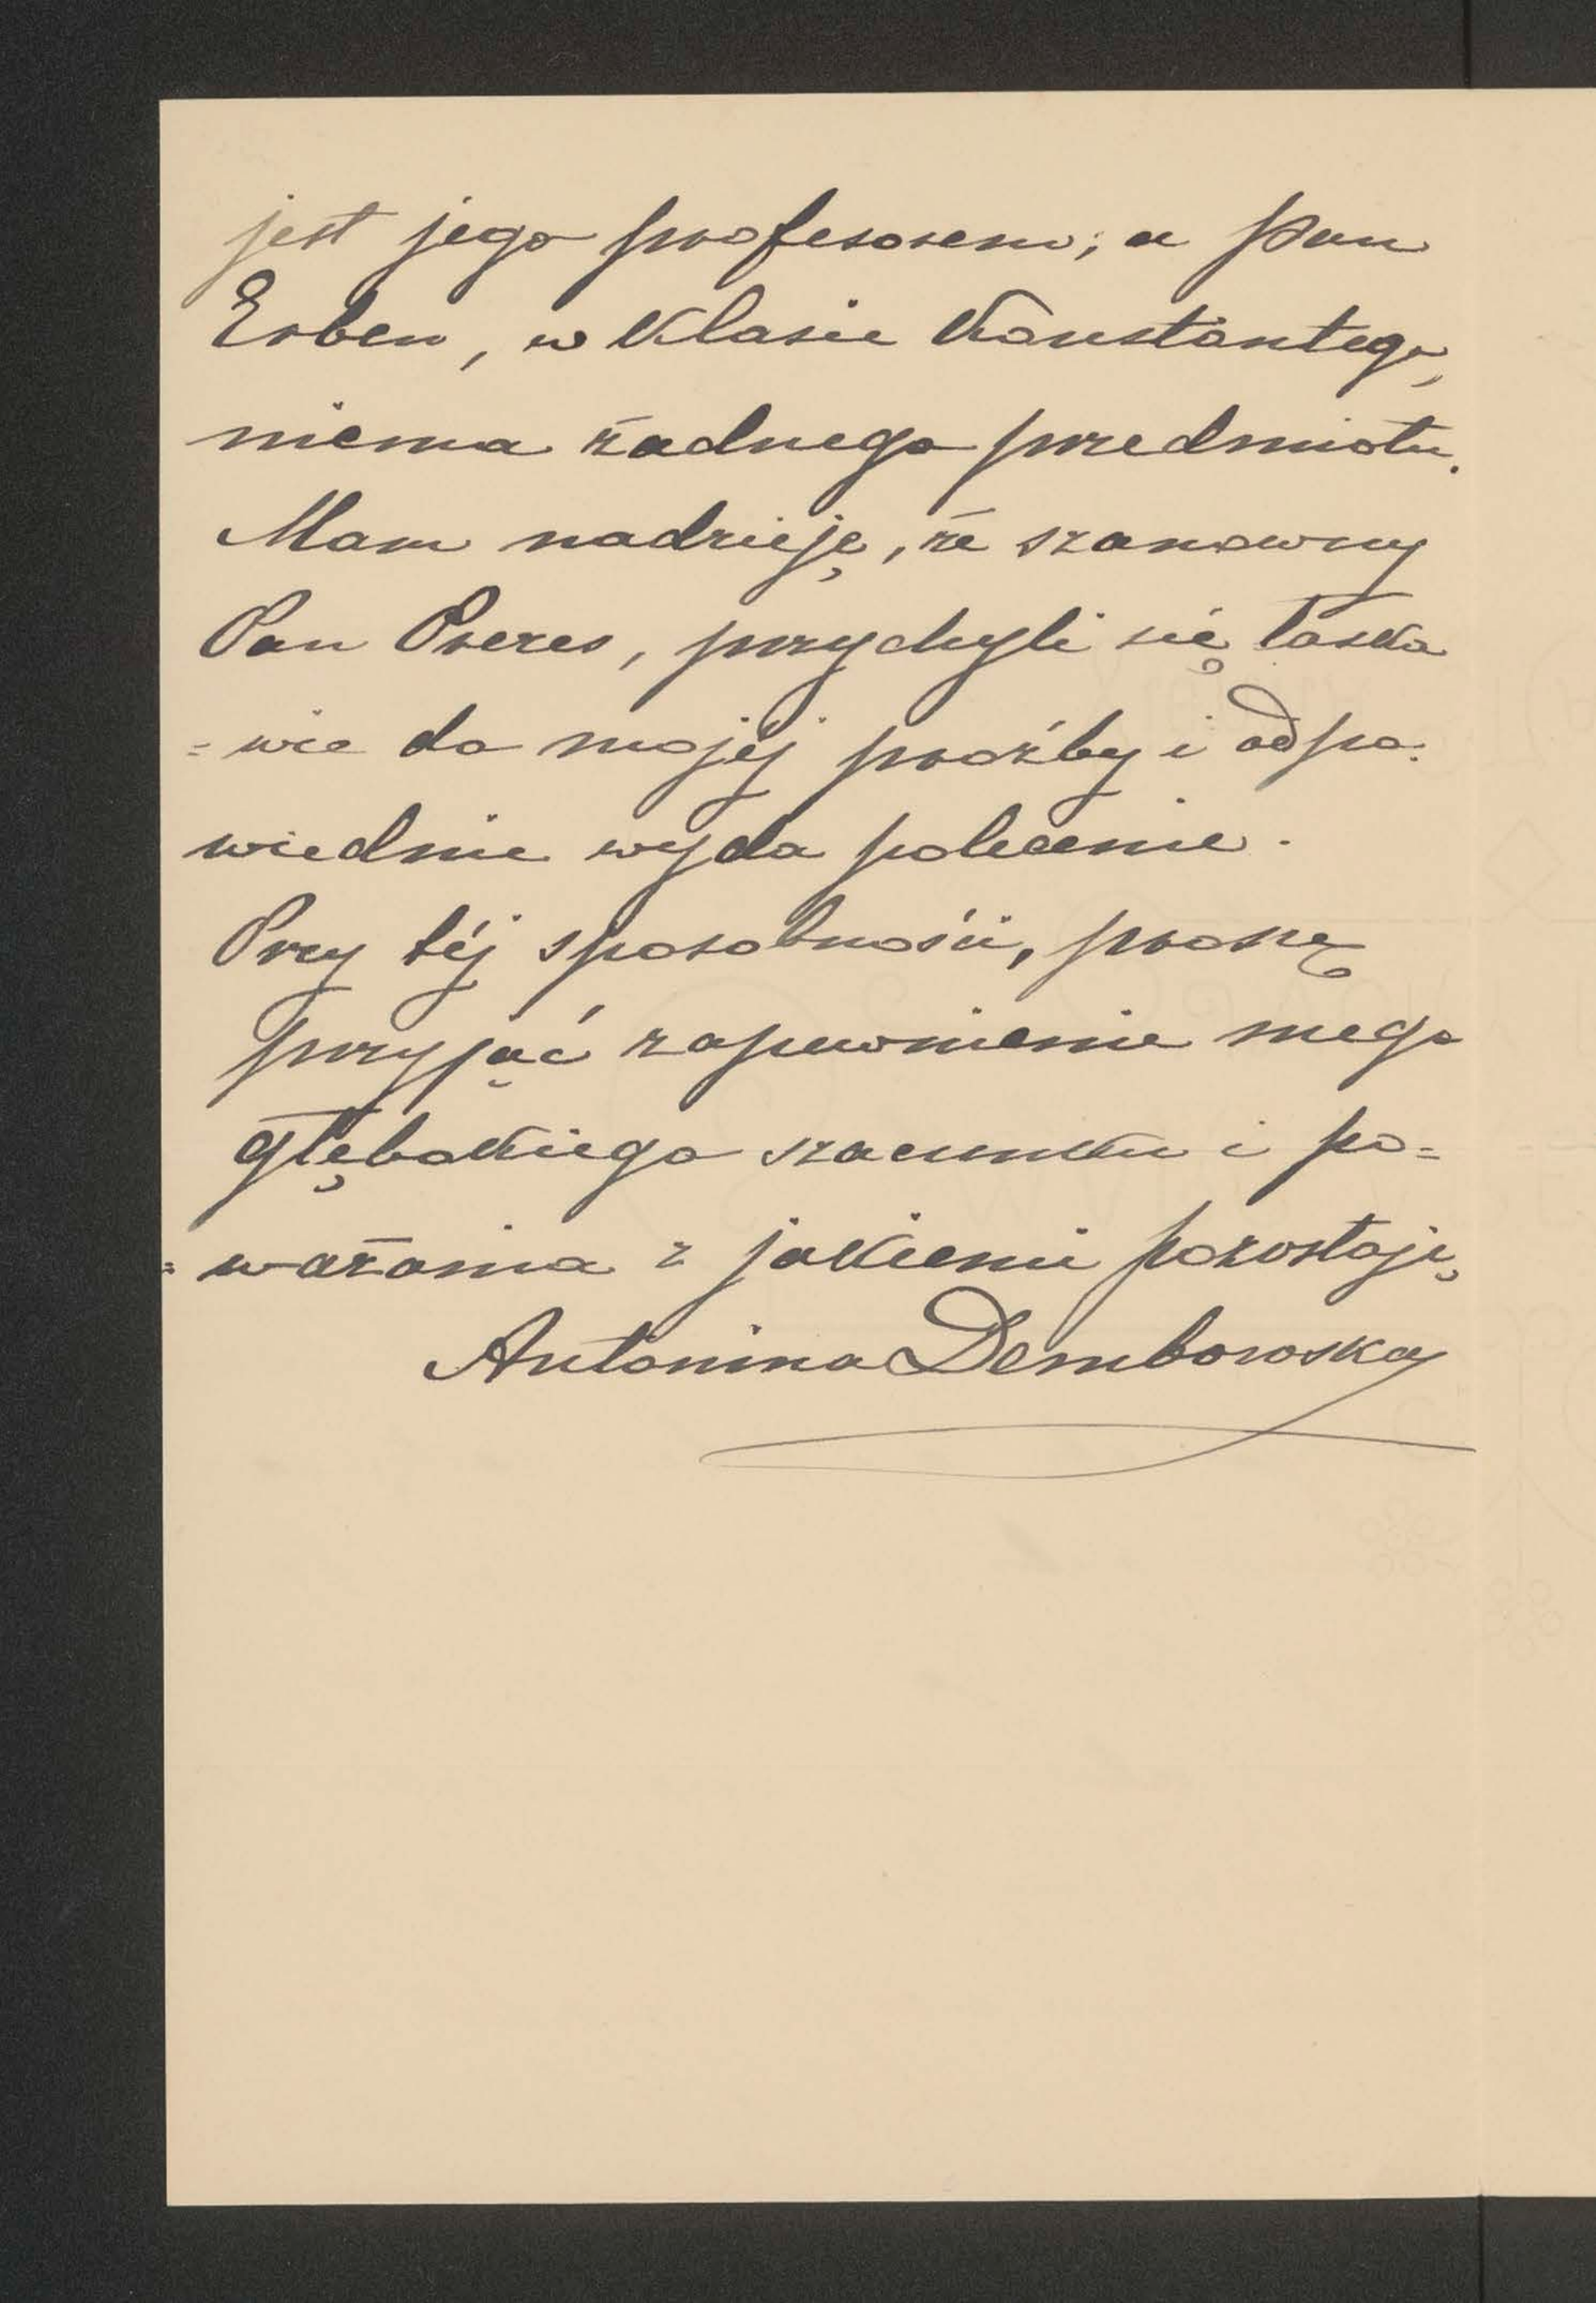 jest jego profesorem; a pan
Erben, w klasie Konstantego,
niema żadnego przedmiotu.
Mam nadzieję, że szanowny
Pan Prezes, przychyli się łaska
=wie do mojéj proźby i odpo=
wiednie wyda polecenie.
Przy téj sposobności, proszę
przyjąć zapewnienie mego
głębokiego szacunku i po=
=ważania z jakiemi pozostaję,
Antonina Dembowska